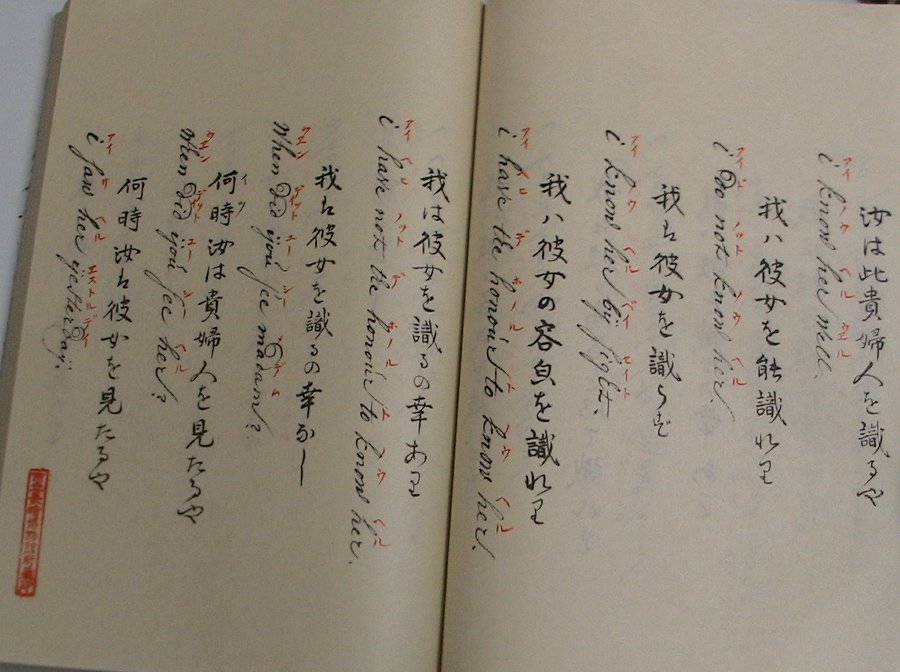 汝は此貴婦人を識るや
アイ ノウ ヘル ウエル
i know her well.
我ハ彼女を能識れり
アイ ド ノット ノウ ヘル
i do not know her.
我は彼女を識らず
アイ ノウ ヘル バイ セイト
i know her by sight.
我ハ彼女の容皃を識れり
アイ デ ト ノウ ヘル
i have the honour to know her.
我は彼女を識るの幸あり
アイ ノット デ ト ノウ ヘル
i have not the honour to know her.
我は彼女を識るの幸なし
ウエン ヂット ユー シー マデム
When did you see madam?
イツ
何時汝は貴婦人を見たるや
ウエン ヂット ユー シー ヘル
When did you see her?
何時汝は彼女を見たるや
アイ サ ヘル エストルデイ
i saw her yesterday.